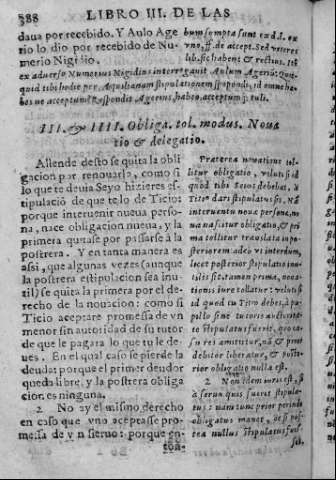 388 LIBRO III. DE LAS
daua por recebido. Y Aulo Age
rio lo dio por recebido de Nu-
merio Nigidio
habeo acceptum
III. & IIII. Obliga. tol. modus. Noua
tio & delegatio.
Allende desto se quita la obli
gacion por renouarla, como si
lo que te deuia Seyo hizieres es-
tipulació de que te lo dé Ticio:
porque interuenir nueua perso-
na, nace obligacion nueua, y la
primera quitase por passarse à la
postrera. Y en tanta manera es
assi, que algunas vezes (aunque
la postrera estipulacion sea inu-
til) se quita la primera por el de-
recho de la nouacion: como si
Ticio aceptare promessa de vn
menor sin autoridad de su tutor
de que le pagara lo que tu le de-
ues. En el qual caso se pierde la
deuda: porque el primer deudor
queda libre, y la postrera obliga-
cion es ninguna.
2 No ay el mismo derecho
en caso que vno aceptasse pro-
messa de vn sieruo: porque en-
Praeterea nouatione tol-
litur obligatio, veluti si id
quod tibi Seius debebat, à
Titio dari stipulatus sis. Nã
interuentu noua persona, no
ua nascitur obligatio, & pri
ma tollitur translata in po-
steriorem adeò vt interdum,
licet posterior stipulatio inu-
tilis sit, tamen prima, noua-
tionis iure tollatur: veluti si
id quod tu Titio debes, à pu-
pillo sine tutoris authorita-
te stipulatus fuerit, quo ca-
su res amittitur, nã & prior
debitor liberatur, & poste-
rior obligatio nulla est.
2 Non idem iuris est, si
à seruo quis fuerit stipula-
tus: nam tunc prior perinde
obligatus manet, ac si pos-
tea nullus stipulatus fuis-